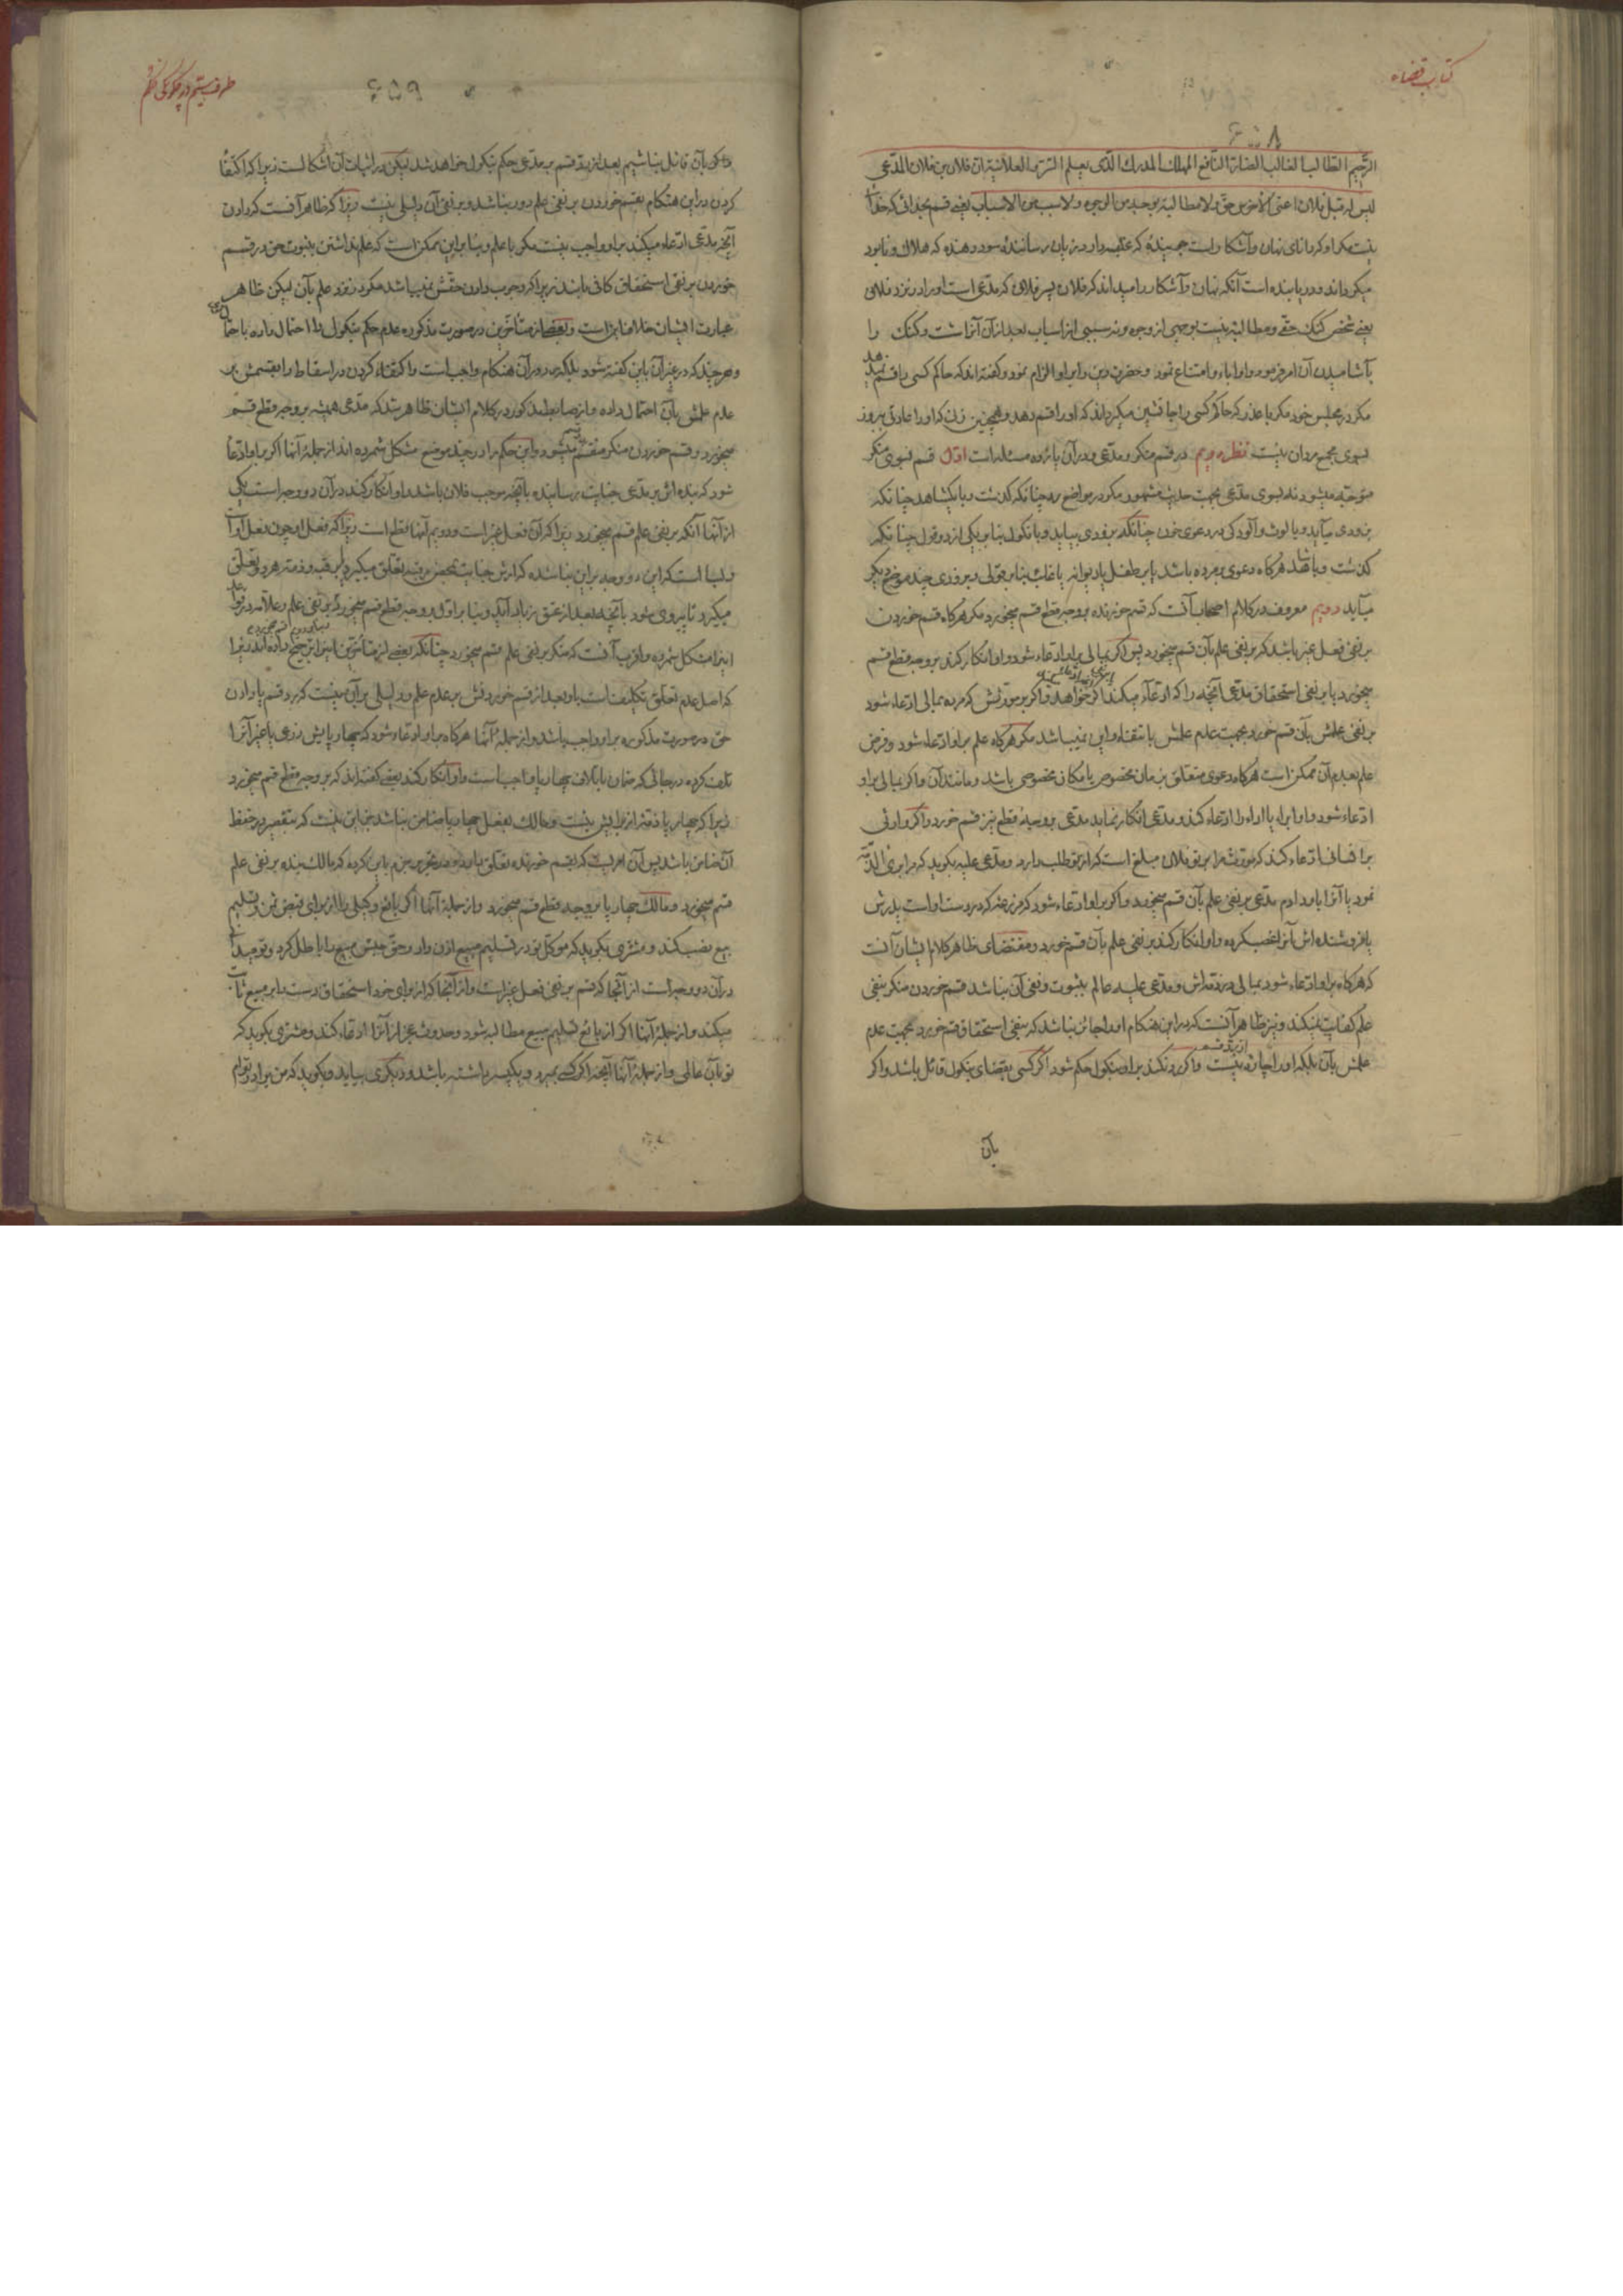 کتاب قضاء
۶۰۸
الرحیم الطالب الغالب الضار النافع المهلك المدرك الذی یعلم السر و العلانیة ان فلان بن فلان المدعی
لیس له قبل فلان اعنی الاخرس حق و لا مطالبة بوجه من الوجوه و لا سبب من الاسباب یعنی قسم بخدائی که خدائی
نیست مگر او که دانای نهان و آشکار است رساننده سود دهنده که هلاك و نابود
میگرداند و دریابنده است آنکه نهان و آشکار را میداند که فلان پسر فلانی که مدعی است او را در نزد فلانی
یعنی شخص گنگ حقی و مطالبه نیست بوجهی از وجوه و نه سببی از اسباب بعد از آن آنرا شست و گنگ را
بآشامیدن آن امر فرمود و او اباء و امتناع نمود و حضرت دین را بر او الزام نمود و گفته‌اند که حاکم کسی را قسم نمیدهد
مگر در مجلس خود مگر با عذر که حاکم کسی را جانشین میگرداند که او را قسم دهد و همچنین زن که او را عادتی بروز
بسوی مجمع مردان نیست نظر دویم در قسم منکر و مدعی و در آن یازده مسئله است اول قسم بسوی منکر
متوجه میشود نه بسوی مدعی بجهت حدیث مشهور مگر در مواضع رد چنانکه گذشت و با یکشاهد چنانکه
بزودی میآید و با لوث و آلودگی در دعوی خون چنانکه بزودی بیاید و با نکول بنا بر یکی از دو قول چنانکه
گذشت و با شاهد هرگاه دعوی بر مرده باشد یا بر طفل یا دیوانه یا غائب بنا بر قولی و بزودی چند موضع دیگر
میآید دویم معروف در کلام اصحاب آنست که قسم خورنده بر وجه قطع قسم میخورد مگر هرگاه قسم خوردن
بر نفی فعل غیر باشد که بر نفی علم بآن قسم میخورد پس اگر بمالی بر او ادعاء شود و او انکار کند بر وجه قطع قسم
میخورد یا بر نفی استحقاق مدعی آنچه را که ادعاء میکند اگر خواهد و اگر بر مورثش که مرده بمالی ادعاء شود
بر نفی علمش بآن قسم خورد بجهت عدم علمش بانتفاء و این نمیباشد مگر هرگاه علم بر او ادعاء شود و فرض
علم بعدم آن ممکن است هرگاه دعوی متعلق بزمان مخصوص یا مکان مخصوصی باشد و مانند آن و اگر بمالی بر او
ادعاء شود و او ابراء یا اداء را ادعاء کند و مدعی انکار نماید مدعی بر وجه قطع نیز قسم خورد و اگر وارثی
بر انسانی ادعاء کند که مورثم را بر تو فلان مبلغ است که از تو طلب دارد و مدعی علیه بگوید که مرا بری الذمه
نمود یا آنرا باو دادم مدعی بر نفی علم بآن قسم میخورد و اگر بر او ادعاء شود که مزرعه که در دست او است پدرش
یا فروشنده‌اش آنرا غصب کرده و او انکار کند بر نفی علم بآن قسم خورد و مقتضای ظاهر کلام ایشان آنست
که هرگاه بر او ادعاء شود بمالی در ذمه‌اش و مدعی علیه عالم بثبوت و نفی آن نباشد قسم خوردن منکر بنفی
علم کفایت نمیکند و نیز ظاهر آنست که در این هنگام او را جائز نباشد که بنفی استحقاق قسم خورد بجهت عدم
علمش بآن بلکه او را چاره نیست از رد قسم و اگر رد نکند بر او بنکول حکم شود اگر کسی بقضای بنکول قائل باشد و اگر
بآن
۶۵۹
و اگر بآن قائل نباشیم بعد از رد قسم بر مدعی حکم بنکول خواهد شد لیکن در اثبات آن اشکالست زیرا که اکتفا
کردن در این هنگام بقسم خوردن بر نفی علم دور نباشد و بر نفی آن دلیلی نیست زیرا که ظاهر آنست که دادن
آنچه مدعی ادعاء میکند بر او واجب نیست مگر با علم و بنا بر این ممکن است که علم نداشتن بثبوت حق در قسم
خوردن بر نفی استحقاق کافی باشد زیرا که وجوب دادن حقش نمیباشد مگر در نزد علم بآن لیکن ظاهر
عبارت ایشان خلاف این است و بعض از متأخرین در صورت مذکوره عدم حکم بنکول را احتمال داده
و هر چند که در غیر آن باین گفته شود بلکه رد در آن هنگام واجب است و اکتفاء کردن در اسقاط را بقسمش بر
عدم علمش بآن احتمال داده و از ضابطه مذکور در کلام ایشان ظاهر شد که مدعی همیشه بر وجه قطع قسم
میخورد و قسم خوردن منکر منقسم میشود و این حکم را در چند موضع مشکل شمرده‌اند از جمله آنها اگر بر او ادعا
شود که بنده‌اش بر مدعی جنایت رسانیده بآنچه موجب فلان باشد و او انکار کند در آن دو وجه است یکی
از آنها آنکه بر نفی علم قسم میخورد زیرا که آن فعل غیر است و دویم آنها قطع است زیرا که فعل او چون فعل او است
و بسا است که این دو وجه بر این بنا شده که ارش جنایت برقبه تعلق میگیرد یا برقبه و ذمه هر دو تعلق
میگیرد تا پیروی شود بآنچه بعد از عتق زیاد آید و بنا بر اول بر وجه قطع قسم میخورد بر نفی علم و علامه در قواعد
اینرا مشکل شمرده و اقرب آنست که منکر بر نفی علم قسم میخورد چنانکه بعضی از متأخرین نیز ترجیح داده‌اند زیرا
که اصل عدم تعلق تکلیف است باو بعد از قسم خوردنش بر عدم علم و دلیلی بر آن نیست که رد قسم یا دادن
حق در صورت مذکوره بر او واجب باشد و از جمله آنها هرگاه بر او ادعاء شود که چهارپایش زرعی یا غیر آنرا
تلف کرده در جائی که ضمان باتلاف چهارپا واجب است و او انکار کند بعضی گفته‌اند که بر وجه قطع قسم میخورد
زیرا که چهارپا ذمه از برایش نیست و مالك بفعل چهارپا ضامن نباشد جز این نیست که بتقصیر در حفظ
آن ضامن باشد پس آن امریست که بقسم خورنده تعلق دارد و در تحریر جزم باین کرده که مالك بنده بر نفی علم
قسم میخورد و مالك چهارپا بر وجه قطع قسم میخورد و از جمله آنها اگر بائع وکیلی را از برای قبض ثمن و تسلیم
مبیع نصب کند و مشتری بگوید که موکل تو در تسلیم مبیع اذن داد و حق حبس مبیع را باطل کرد
در آن دو وجه است از آنجا که قسم بر نفی فعل غیر است و از آنجا که از برای خود استحقاق دست را بر مبیع ثابت
میکند و از جمله آنها اگر از بائع تسلیم مبیع مطالبه شود و حدوث عجز از آنرا ادعاء کند و مشتری بگوید که
تو بآن عالمی و از جمله آنها آنچه اگر کسی بمیرد و یکپسر داشته باشد و دیگری بیاید و بگوید که من برادر توام